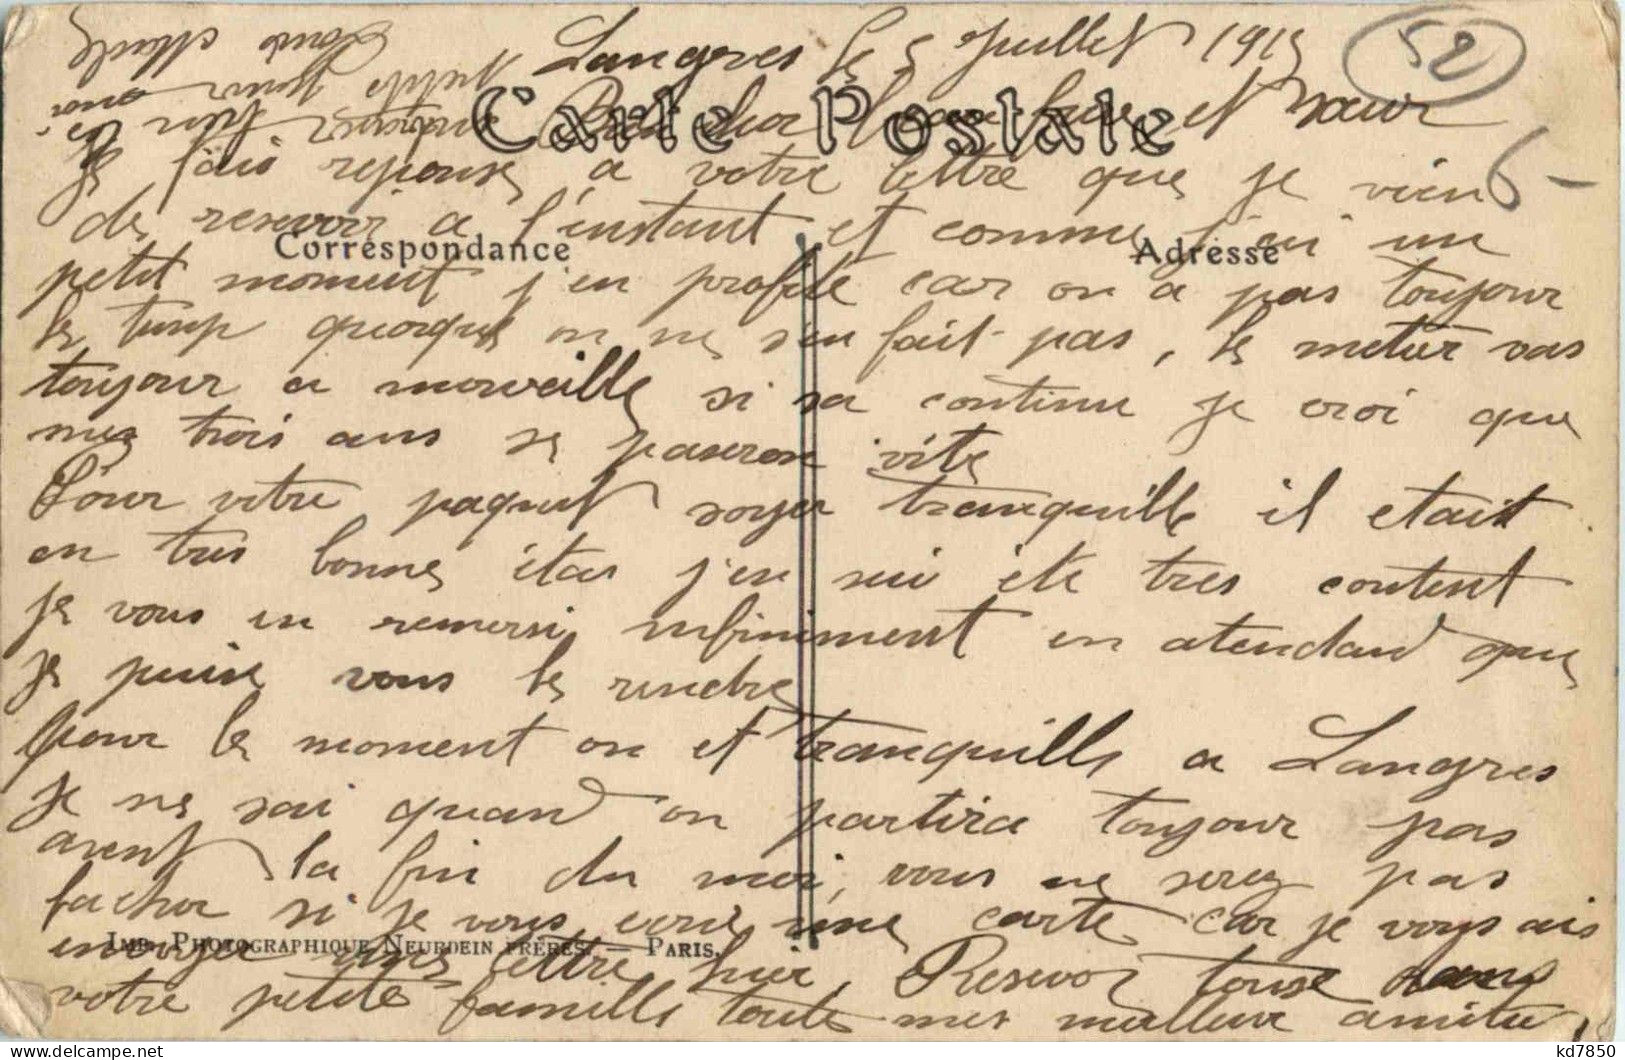 Langres le 5 Juillet 1915
52
Carte Postale
Bien cher beau frere et sœur
6 -
Je fais reponse a votre lettre que je vien
de resevoir a l'instant et comme j'ai un
Correspondance
Adresse
petit moment j'en profite car on a pas toujour
le temp quoique on ne s'en fait pas, le metier vas
toujour a merveille si sa continu je croi que
mes trois ans se passeron vite
Pour votre paquet soyer tranquille il etait
en tres bonne état j'en sui été tres content
je vous en remersie infiniment en atendand que
je puise vous le rendre
pour le moment on et tranquille a Langres
Je ne sai quand on partira toujour pas
avent la fin du moi, vous ne serez pas
facher si je vous ecrie une carte car je vous ais
Imp. Photographique Neurdein frères. — Paris.
envoyer une lettre hier. Resevoi tousse dans
votre petite famille toute mes meilleur amitié
petite pour moi
Louis